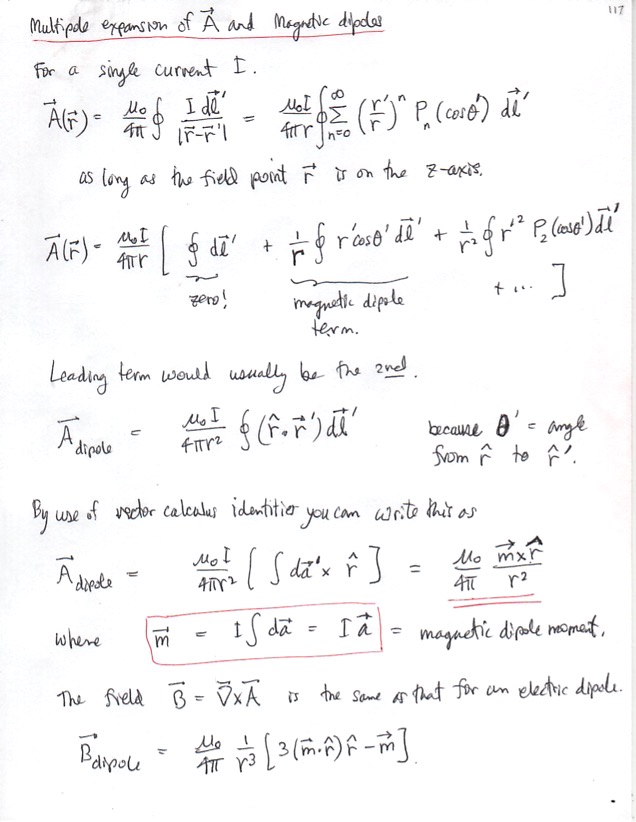 117
Multipole expansion of A⃗ and Magnetic dipoles
For a single current I.
A⃗(r⃗) = μ₀/4π ∮ I dl⃗′/|r⃗-r⃗′| = μ₀I/4πr ∮ ∑_{n=0}^{∞} (r′/r)ⁿ Pₙ(cosθ′) dl⃗′
as long as the field point r⃗ is on the z-axis.
A⃗(r⃗) = μ₀I/4πr [ ∮ dl⃗′ + 1/r ∮ r′cosθ′ dl⃗′ + 1/r² ∮ r′² P₂(cosθ′) dl⃗′
zero! magnetic dipole + ... ]
term.
Leading term would usually be the 2nd.
A⃗dipole = μ₀I/4πr² ∮ (r̂·r⃗′) dl⃗′ because θ′ = angle
from r̂ to r̂′.
By use of vector calculus identities you can write this as
A⃗dipole = μ₀I/4πr² [ ∫ da⃗′ × r̂ ] = μ₀/4π m⃗×r̂/r²
where m⃗ = I∫da⃗ = I a⃗ = magnetic dipole moment.
The field B⃗ = ∇⃗×A⃗ is the same as that for an electric dipole.
B⃗dipole = μ₀/4π 1/r³ [3(m⃗·r̂)r̂ - m⃗]